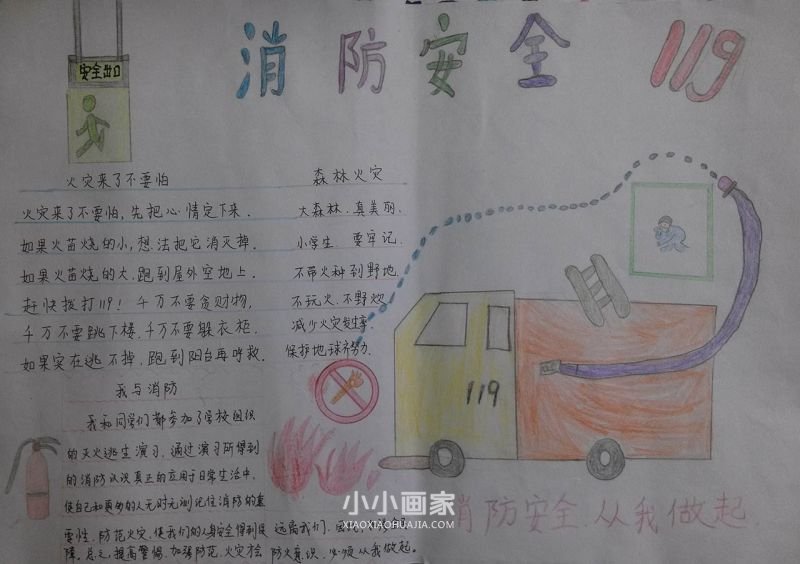 消防安全 119
安全出口
火灾来了不要怕
火灾来了不要怕,先把心情定下来.
如果火苗烧的小,想法把它消灭掉.
如果火苗烧的大,跑到屋外空地上.
赶快拨打119!千万不要贪财物,
千万不要跳下楼.千万不要躲衣柜.
如果实在逃不掉,跑到阳台再呼救.
森林火灾
大森林.真美丽.
小学生.要牢记.
不带火种到野地
不玩火.不野炊
减少火灾发生率.
保护地球齐努力.
我与消防
我和同学们都参加了学校组织
的灭火逃生演习.通过演习所得到
的消防认识真正的应用于日常生活中.
使自己和更多的人无时无刻记住消防的重
要性.防范火灾.使我们的人身安全得到保
障.总之,提高警惕.加强防范.火灾会
远离我们.
防火意识.必须从我做起。
119
消防安全.从我做起
小小画家
XIAOXIAOHUAJIA.COM